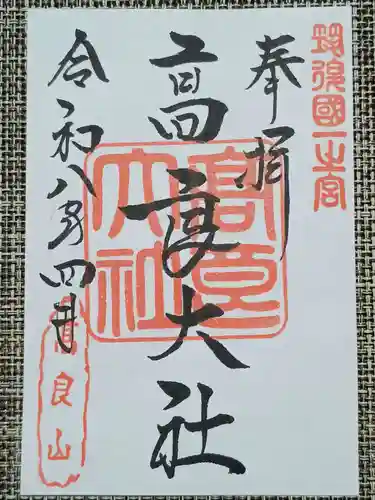 筑後國一之宮
奉拝
高良大社
高良大社
令和八年四月
高良山